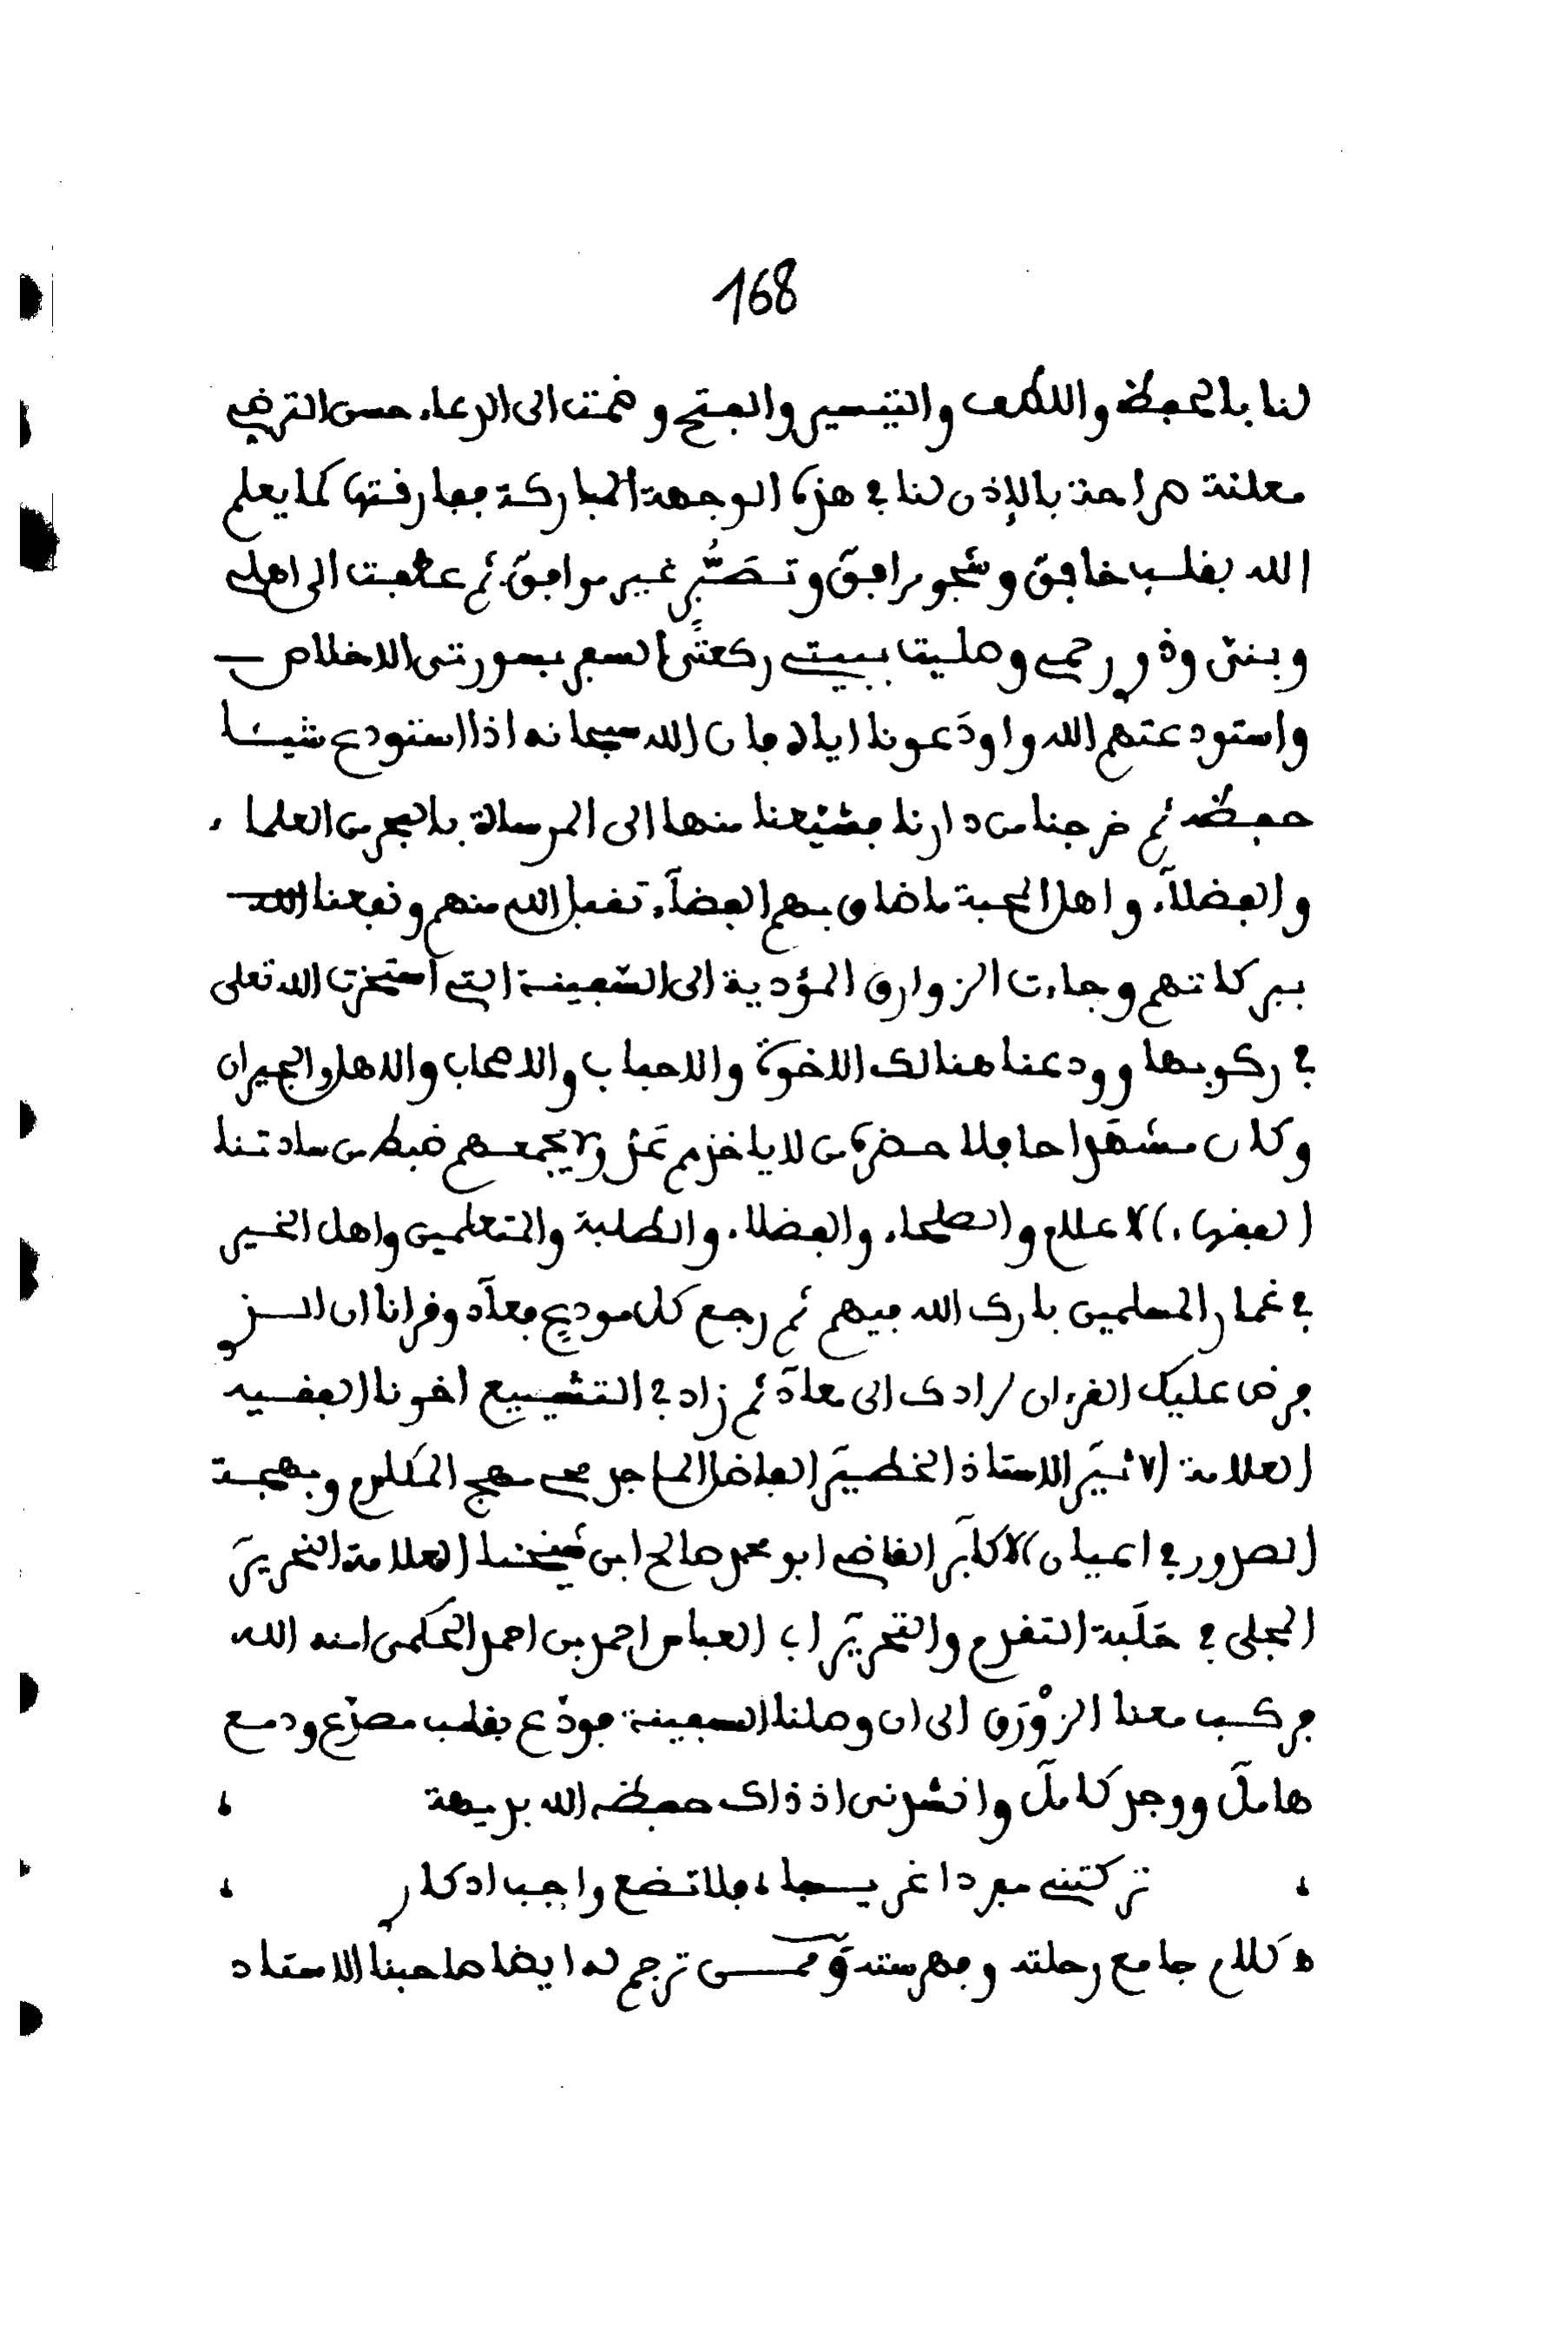 168
لنا بالحفظ واللطف والتيسير والفتح وضمت الى الدعاء حسن الترضي
معلنة صراحة بالاذن لنا في هذه الوجهة المباركة ففارقتها كما يعلم
الله بقلب خافق وشجو مرافق وتصبُّر غير موافق ثم عطفت الى اهلي
وبنيّ وذوي رحمي وصليت ببيتي ركعتَي السفر بسورتى الاخلاص
واستودعتهم الله واودَعونا اياه فان الله سبحانه اذا استودع شيئا
حفظه ثم خرجنا من دارنا فشيّعنا منها الى المرسات بالبحر من العلماء
والفضلآء واهل المحبة ما ضاق بهم الفضآء تقبل الله منهم ونفعنا الله
ببركاتهم وجاءت الزوارق المؤدية الى السّفينة التي استخرت الله تعلى
في ركوبها وودعنا هنالك الاخوة والاحباب والاصحاب والاهل والجيران
وكان مشهدا حافلا حضره من لا ياخذهم عَدّ ولا يجمعهم ضبط من سادتنا
الفقهاء الاعلام والصلحاء والفضلاء والطلبة والمتعلمين واهل الخير
في غمار المسلمين بارك الله فيهم ثم رجع كل مودع فعلآه وقرانا ان الذي
فرض عليك القرءان لرادك الى معاد ثم زاد في التشييع اخونا الفقيه
العلامة الاثير الاستاذ الخطيب الفاضل الماجد محي منهج المكارم وبهجة
الصدور في اعيان الاكابر القاضي ابو محمد صالح ابن شيخنا العلامة النحرير
المجلى في حَلَبة التقرير والتحرير ابى العباس احمد بن احمد الحكمى امنه الله
فركب معنا الزوْرَق الى ان وصلنا السفينة فودّع بقلب مصدّع ودمع
هامل ووجد كامل وانشدنى اذ ذاك حفظه الله بديهة
تركتني مفردا غريبا ، فلا تضع واجب ادكار
ه كلام جامع رحلته وفهرسته وممن ترجم له ايضا صاحبنا الاستاد